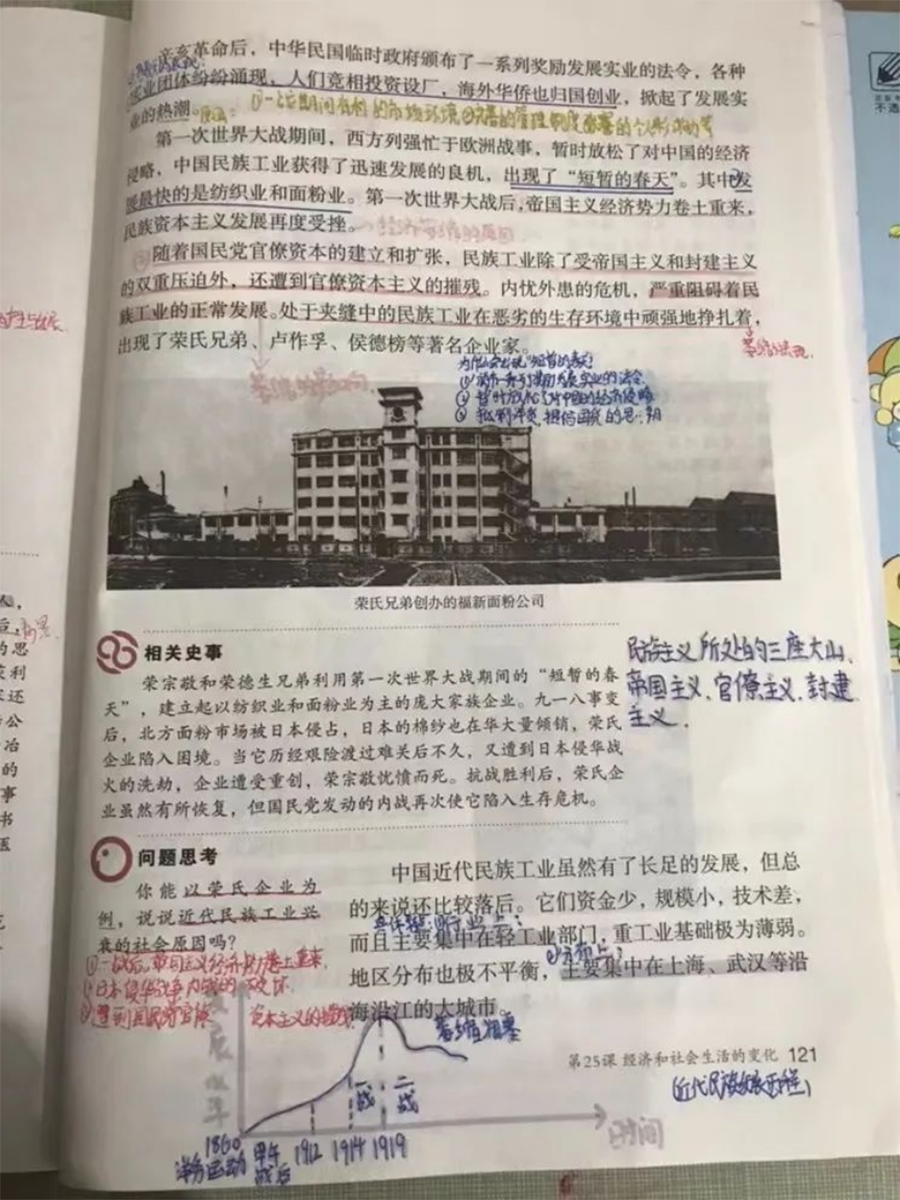 辛亥革命后，中华民国临时政府颁布了一系列奖励发展实业的法令，各种
实业团体纷纷涌现，人们竞相投资设厂，海外华侨也归国创业，掀起了发展实
业的热潮。
第一次世界大战期间，西方列强忙于欧洲战事，暂时放松了对中国的经济
侵略，中国民族工业获得了迅速发展的良机，出现了“短暂的春天”。其中发
展最快的是纺织业和面粉业。第一次世界大战后，帝国主义经济势力卷土重来，
民族资本主义发展再度受挫。
随着国民党官僚资本的建立和扩张，民族工业除了受帝国主义和封建主义
的双重压迫外，还遭到官僚资本主义的摧残。内忧外患的危机，严重阻碍着民
族工业的正常发展。处于夹缝中的民族工业在恶劣的生存环境中顽强地挣扎着，
出现了荣氏兄弟、卢作孚、侯德榜等著名企业家。
为什么会出现“短暂的春天”
②暂时放松了对中国的经济侵略
③抵制洋货，提倡国货的思潮
荣氏兄弟创办的福新面粉公司
相关史事
荣宗敬和荣德生兄弟利用第一次世界大战期间的“短暂的春
天”，建立起以纺织业和面粉业为主的庞大家族企业。九一八事变
后，北方面粉市场被日本侵占，日本的棉纱也在华大量倾销，荣氏
企业陷入困境。当它历经艰险渡过难关后不久，又遭到日本侵华战
火的洗劫，企业遭受重创，荣宗敬忧愤而死。抗战胜利后，荣氏企
业虽然有所恢复，但国民党发动的内战再次使它陷入生存危机。
民族主义所处的三座大山、
帝国主义、官僚主义、封建
主义。
问题思考
你能以荣氏企业为
例，说说近代民族工业兴
衰的社会原因吗？
①一战后，帝国主义经济势力卷土重来
②日本侵华战争，内战的破坏
资本主义的摧残
中国近代民族工业虽然有了长足的发展，但总
的来说还比较落后。它们资金少，规模小，技术差，
而且主要集中在轻工业部门，重工业基础极为薄弱。
地区分布也极不平衡，主要集中在上海、武汉等沿
海沿江的大城市。
发展水平
一战
二战
时间
1860
洋务运动
甲午
战后
1912
1914
1919
第25课 经济和社会生活的变化 121